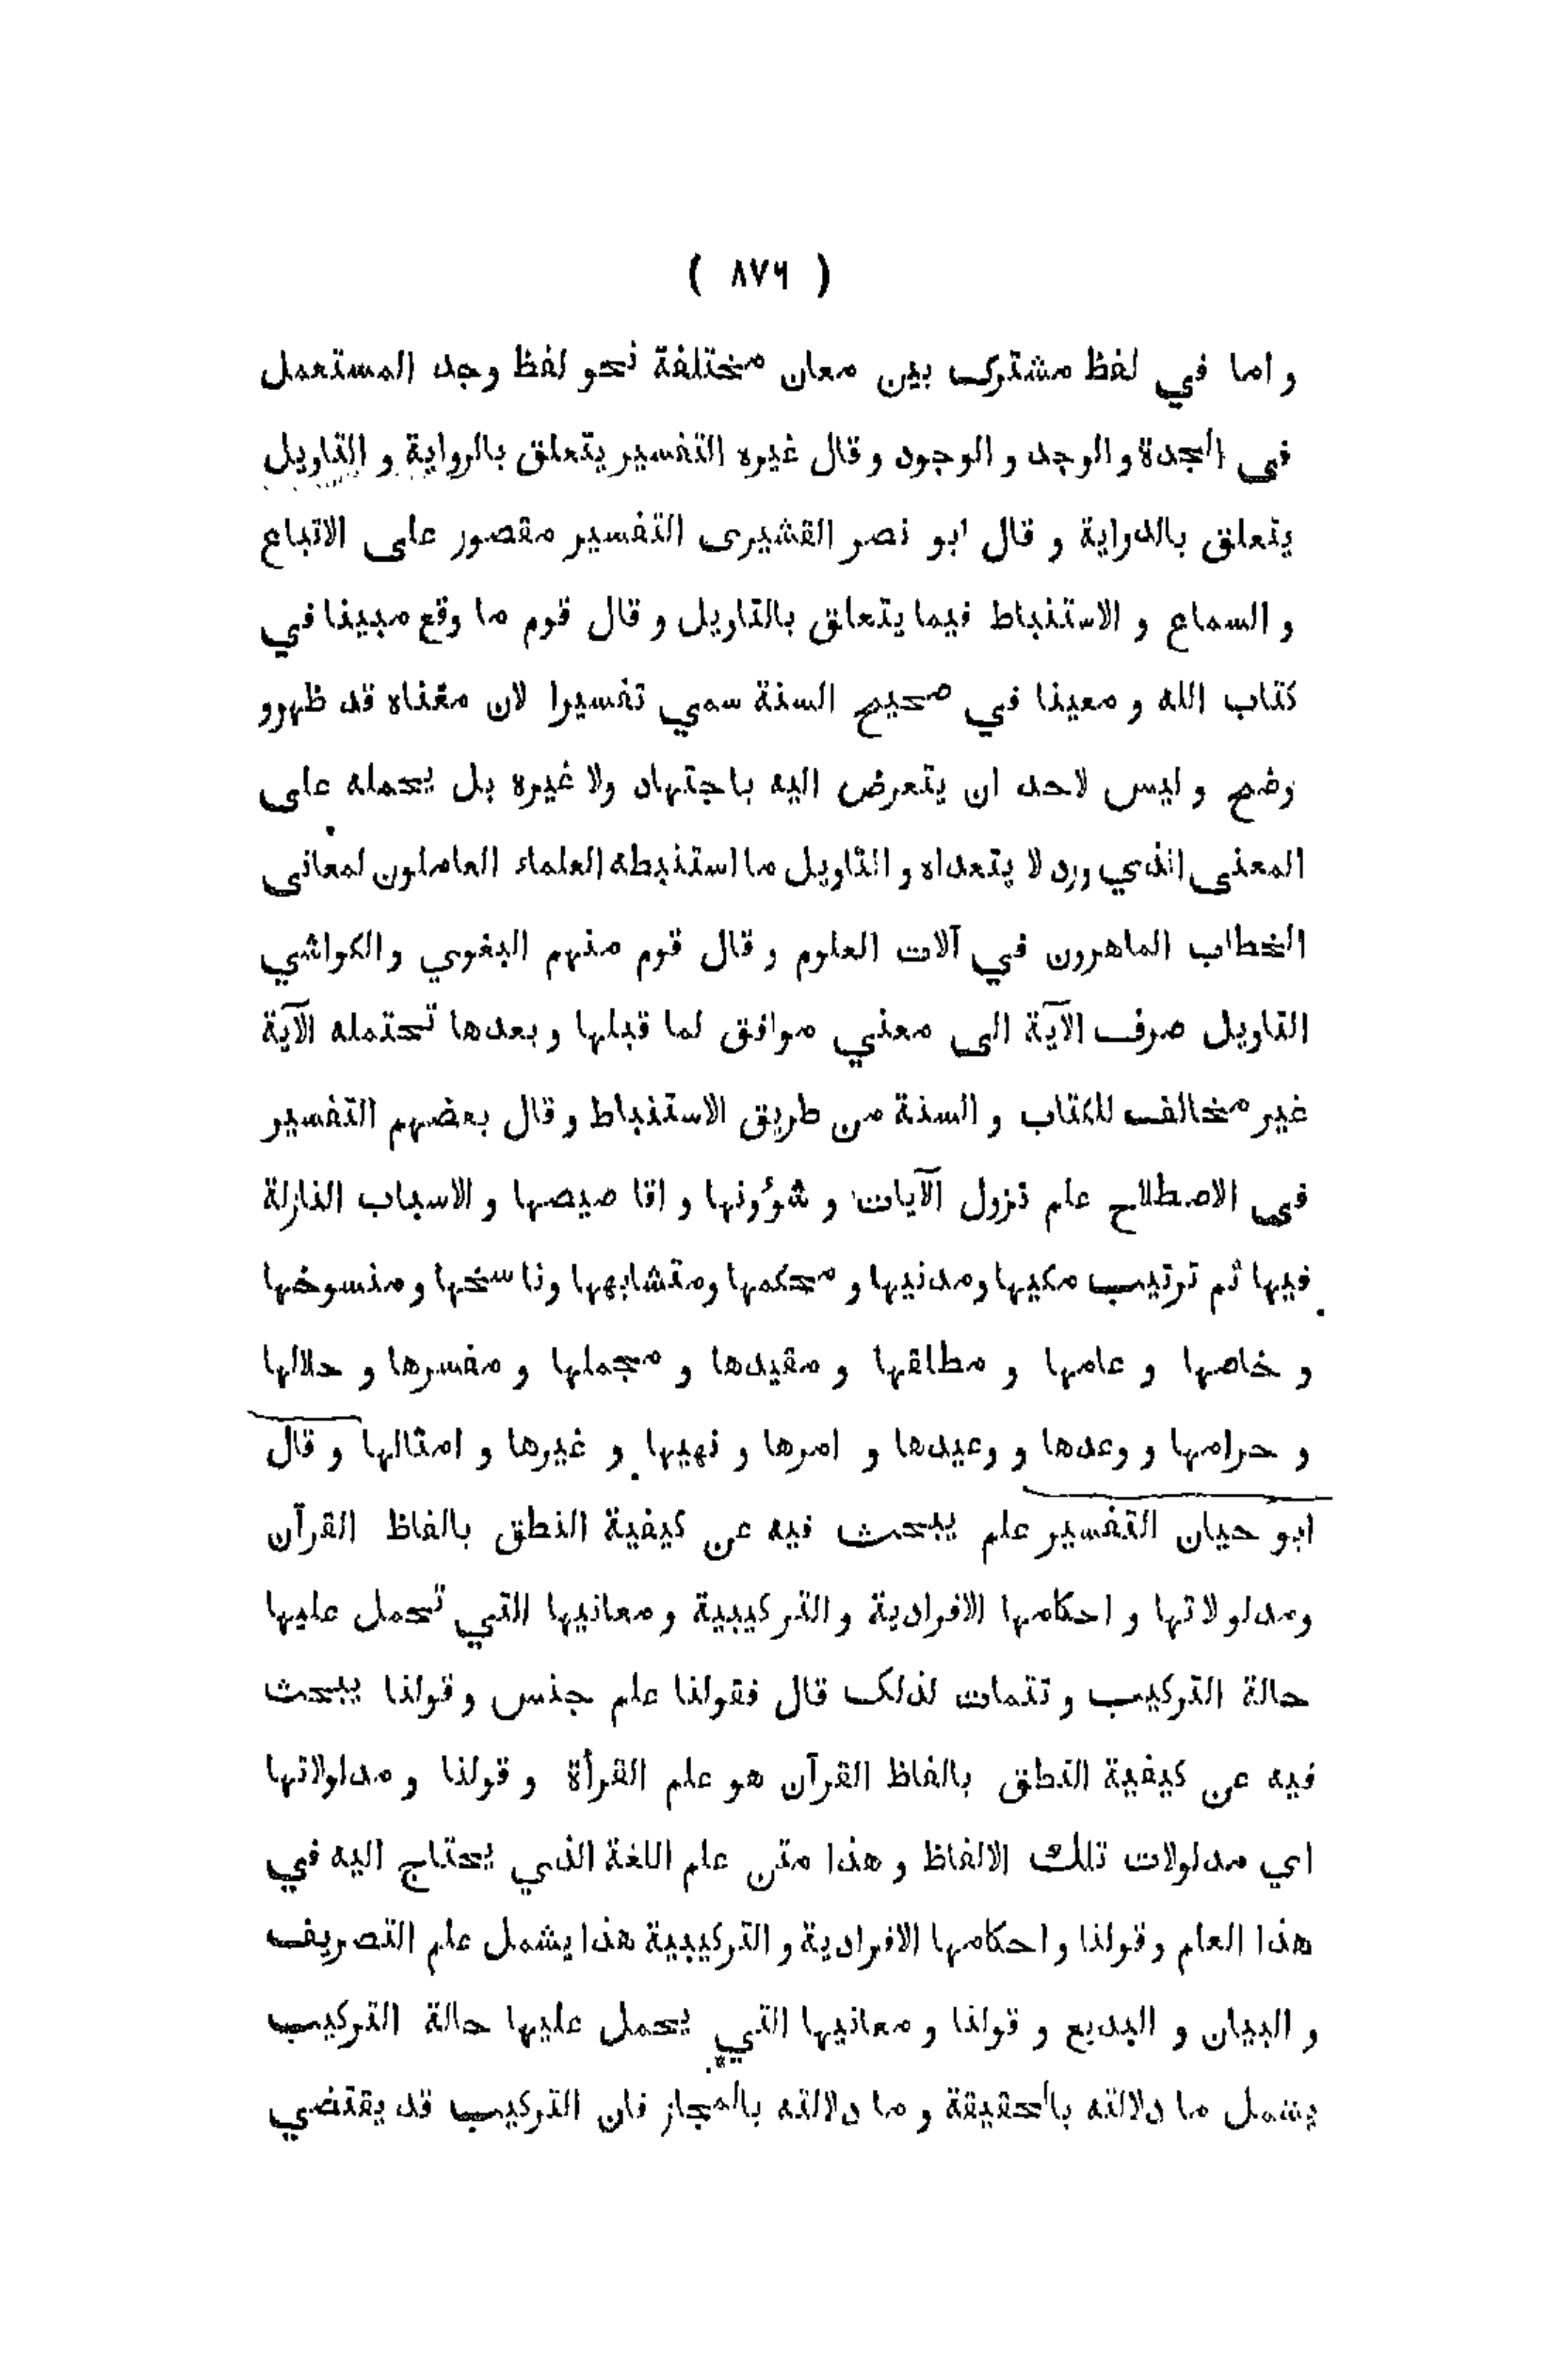 ( ٨٧٦ )
و اما في لفظ مشترك بين معان مختلفة نحو لفظ وجد المستعمل
في الجدة و الوجد و الوجود و قال غيره التفسير يتعلق بالرواية و التاويل
يتعلق بالدراية و قال ابو نصر القشيرى التفسير مقصور على الاتباع
و السماع و الاستنباط فيما يتعلق بالتاويل و قال قوم ما وقع مبينا في
كتاب الله و معينا في صحيح السنة سمي تفسيرا لان معناه قد ظهر و
وضح و ليس لاحد ان يتعرض اليه باجتهاد ولا غيره بل يحمله على
المعنى الذي ورد لا يتعداه و التاويل ما استنبطه العلماء العاملون لمعانى
الخطاب الماهرون في آلات العلوم و قال قوم منهم البغوي و الكواشي
التاويل صرف الآية الى معني موافق لما قبلها و بعدها تحتمله الآية
غير مخالف للكتاب و السنة من طريق الاستنباط و قال بعضهم التفسير
في الاصطلاح علم نزول الآيات و شؤونها و اقا صيصها و الاسباب النازلة
فيها ثم ترتيب مكيها و مدنيها و محكمها و متشابهها و نا سخها و منسوخها
و خاصها و عامها و مطلقها و مقيدها و مجملها و مفسرها و حلالها
و حرامها و وعدها و وعيدها و امرها و نهيها و غيرها و امثالها و قال
ابو حيان التفسير علم يبحث فيه عن كيفية النطق بالفاظ القرآن
ومدلولاتها و احكامها الافرادية و التركيبية و معانيها التي تحمل عليها
حالة التركيب و تتمات لذلك قال فقولنا علم جنس و قولنا يبحث
فيه عن كيفية النطق بالفاظ القرآن هو علم القرأة و قولنا و مدلولاتها
اي مدلولات تلك الالفاظ و هذا متن علم اللغة الذي يحتاج اليه في
هذا العلم و قولنا و احكامها الافرادية و التركيبية هذا يشمل علم التصريف
و البيان و البديع و قولنا و معانيها التي يحمل عليها حالة التركيب
يشمل ما دلالته بالحقيقة و ما دلالته بالمجاز فان التركيب قد يقتضي